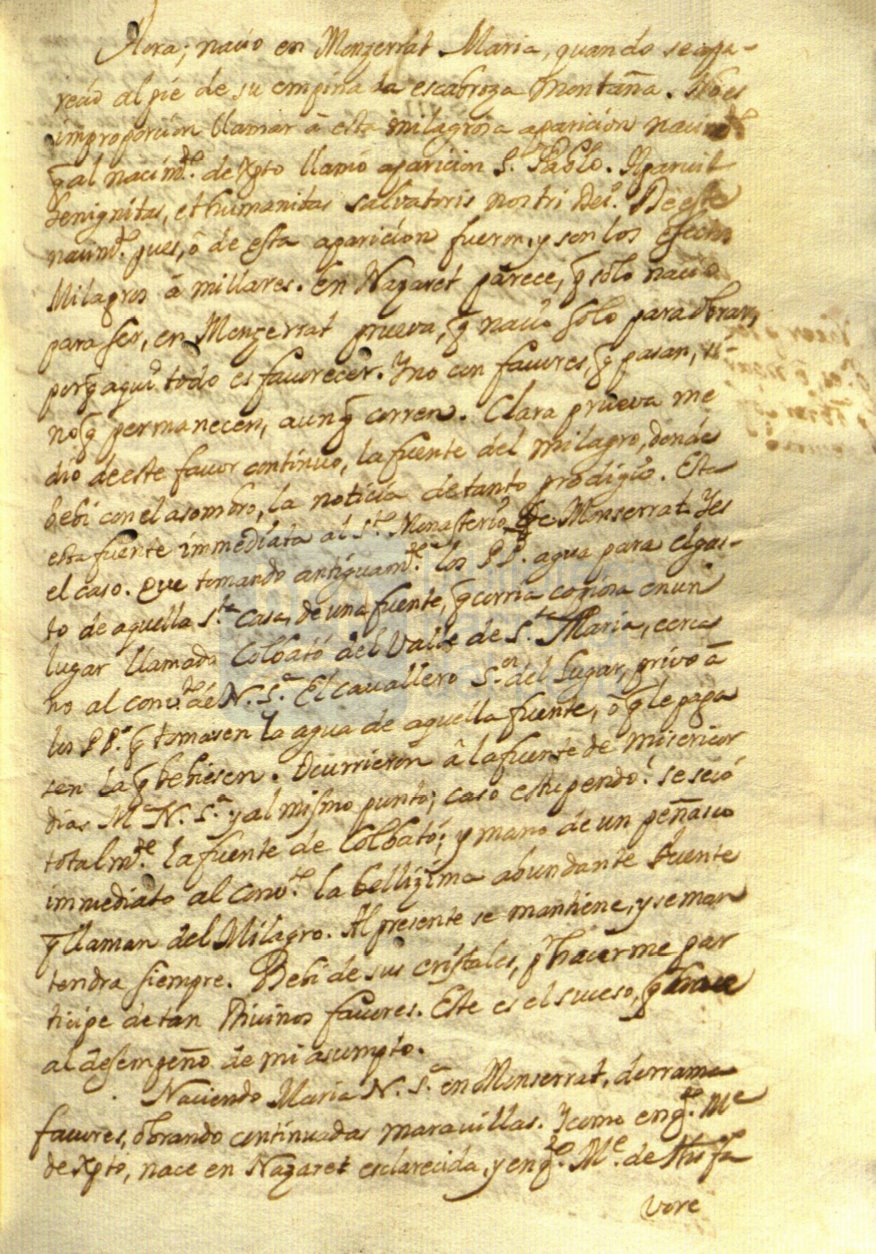 Aora; nacio en Monzerrat Maria, quando se apa-
recio al pie de su empinada escabroza Montaña. No es
improporcion llamar â esta milagrosa aparicion nacim.to
q̃ al nacim.to de Xpto llamó aparicion S. Pablo. Aparuit
benignitas, et humanitas salvatoris nostri Dei. De este
nacim.to pues, ô de esta aparicion fueron, y son los efectos
Milagros â millares. En Nazaret parece, q̃ solo nacio
para ser, en Monzerrat prueva, q̃ nacio solo para obrar,
porq̃ aqui todo es favorecer. Y no con favores, q̃ pasan, si-
no q̃ permanecen, aunq̃ corren. Clara prueva me
dio de este favor continuo, la fuente del milagro, donde
bebi con el asombro, la noticia de tanto prodigio. Esta
esta fuente immediata al S.to Monasterio de Monserrat. Y es
el caso. Que tomando antiguam.te los PP. agua para el gas-
to de aquella S.ta Casa, de una fuente, q̃ corria copiosa en un
lugar llamado Colbató del Valle de S.ta Maria, cerca
no al conv.to de N. S.a El cavallero S.or del Lugar, privó â
los PP.s q̃ tomasen la agua de aquella fuente, ô q̃ le paga
sen la q̃ bebiesen. Ocurrieron â la fuente de misericor
dias M.e N. S.a y al mismo punto; caso estupendo! se secó
totalm.te la fuente de Colbató; y manó de un peñasco
immediato al conv.to la bellizima abundante fuente
q̃ llaman del Milagro. Al presente se mantiene, y se man
tendra siempre. Bebi de sus cristales, p.r hacerme par
ticipe de tan Divinos favores. Este es el suceso, q̃
al desempeño de mi asumpto.
Naciendo Maria N. S.a en Monserrat, derrama
favores, obrando continuadas maravillas. Y como en q.to M.e
de Xpto, nace en Nazaret esclarecida, y en q.to M.e de
vore